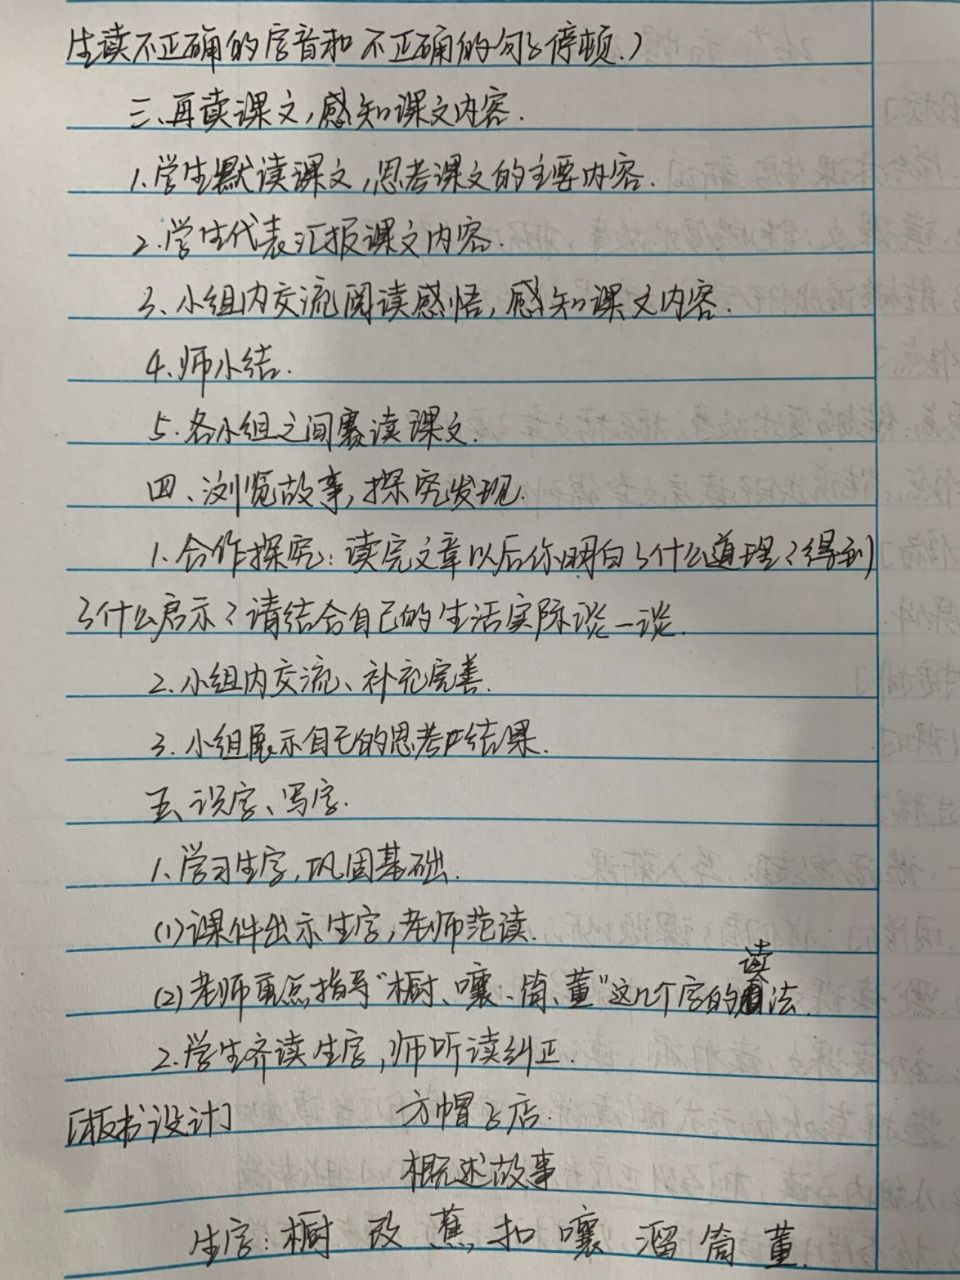 生读不正确的字音和不正确的句子停顿。)
三、再读课文,感知课文内容.
1.学生默读课文,思考课文的主要内容.
2.学生代表汇报课文内容.
3.小组内交流阅读感悟,感知课文内容.
4.师小结.
5.各小组之间赛读课文.
四、浏览故事,探究发现.
1.合作探究:读完文章以后你明白了什么道理?得到
了什么启示?请结合自己的生活实际谈一谈.
2.小组内交流、补充完善.
3.小组展示自己的思考结果.
五、识字、写字.
1.学习生字,巩固基础.
(1)课件出示生字,老师范读.
(2)老师重点指导"橱、嚷、筒、董"这几个字的读法.
2.学生齐读生字,师听读纠正.
[板书设计] 方帽子店.
概述故事
生字:橱 改 蕉 扣 嚷 溜 筒 董.